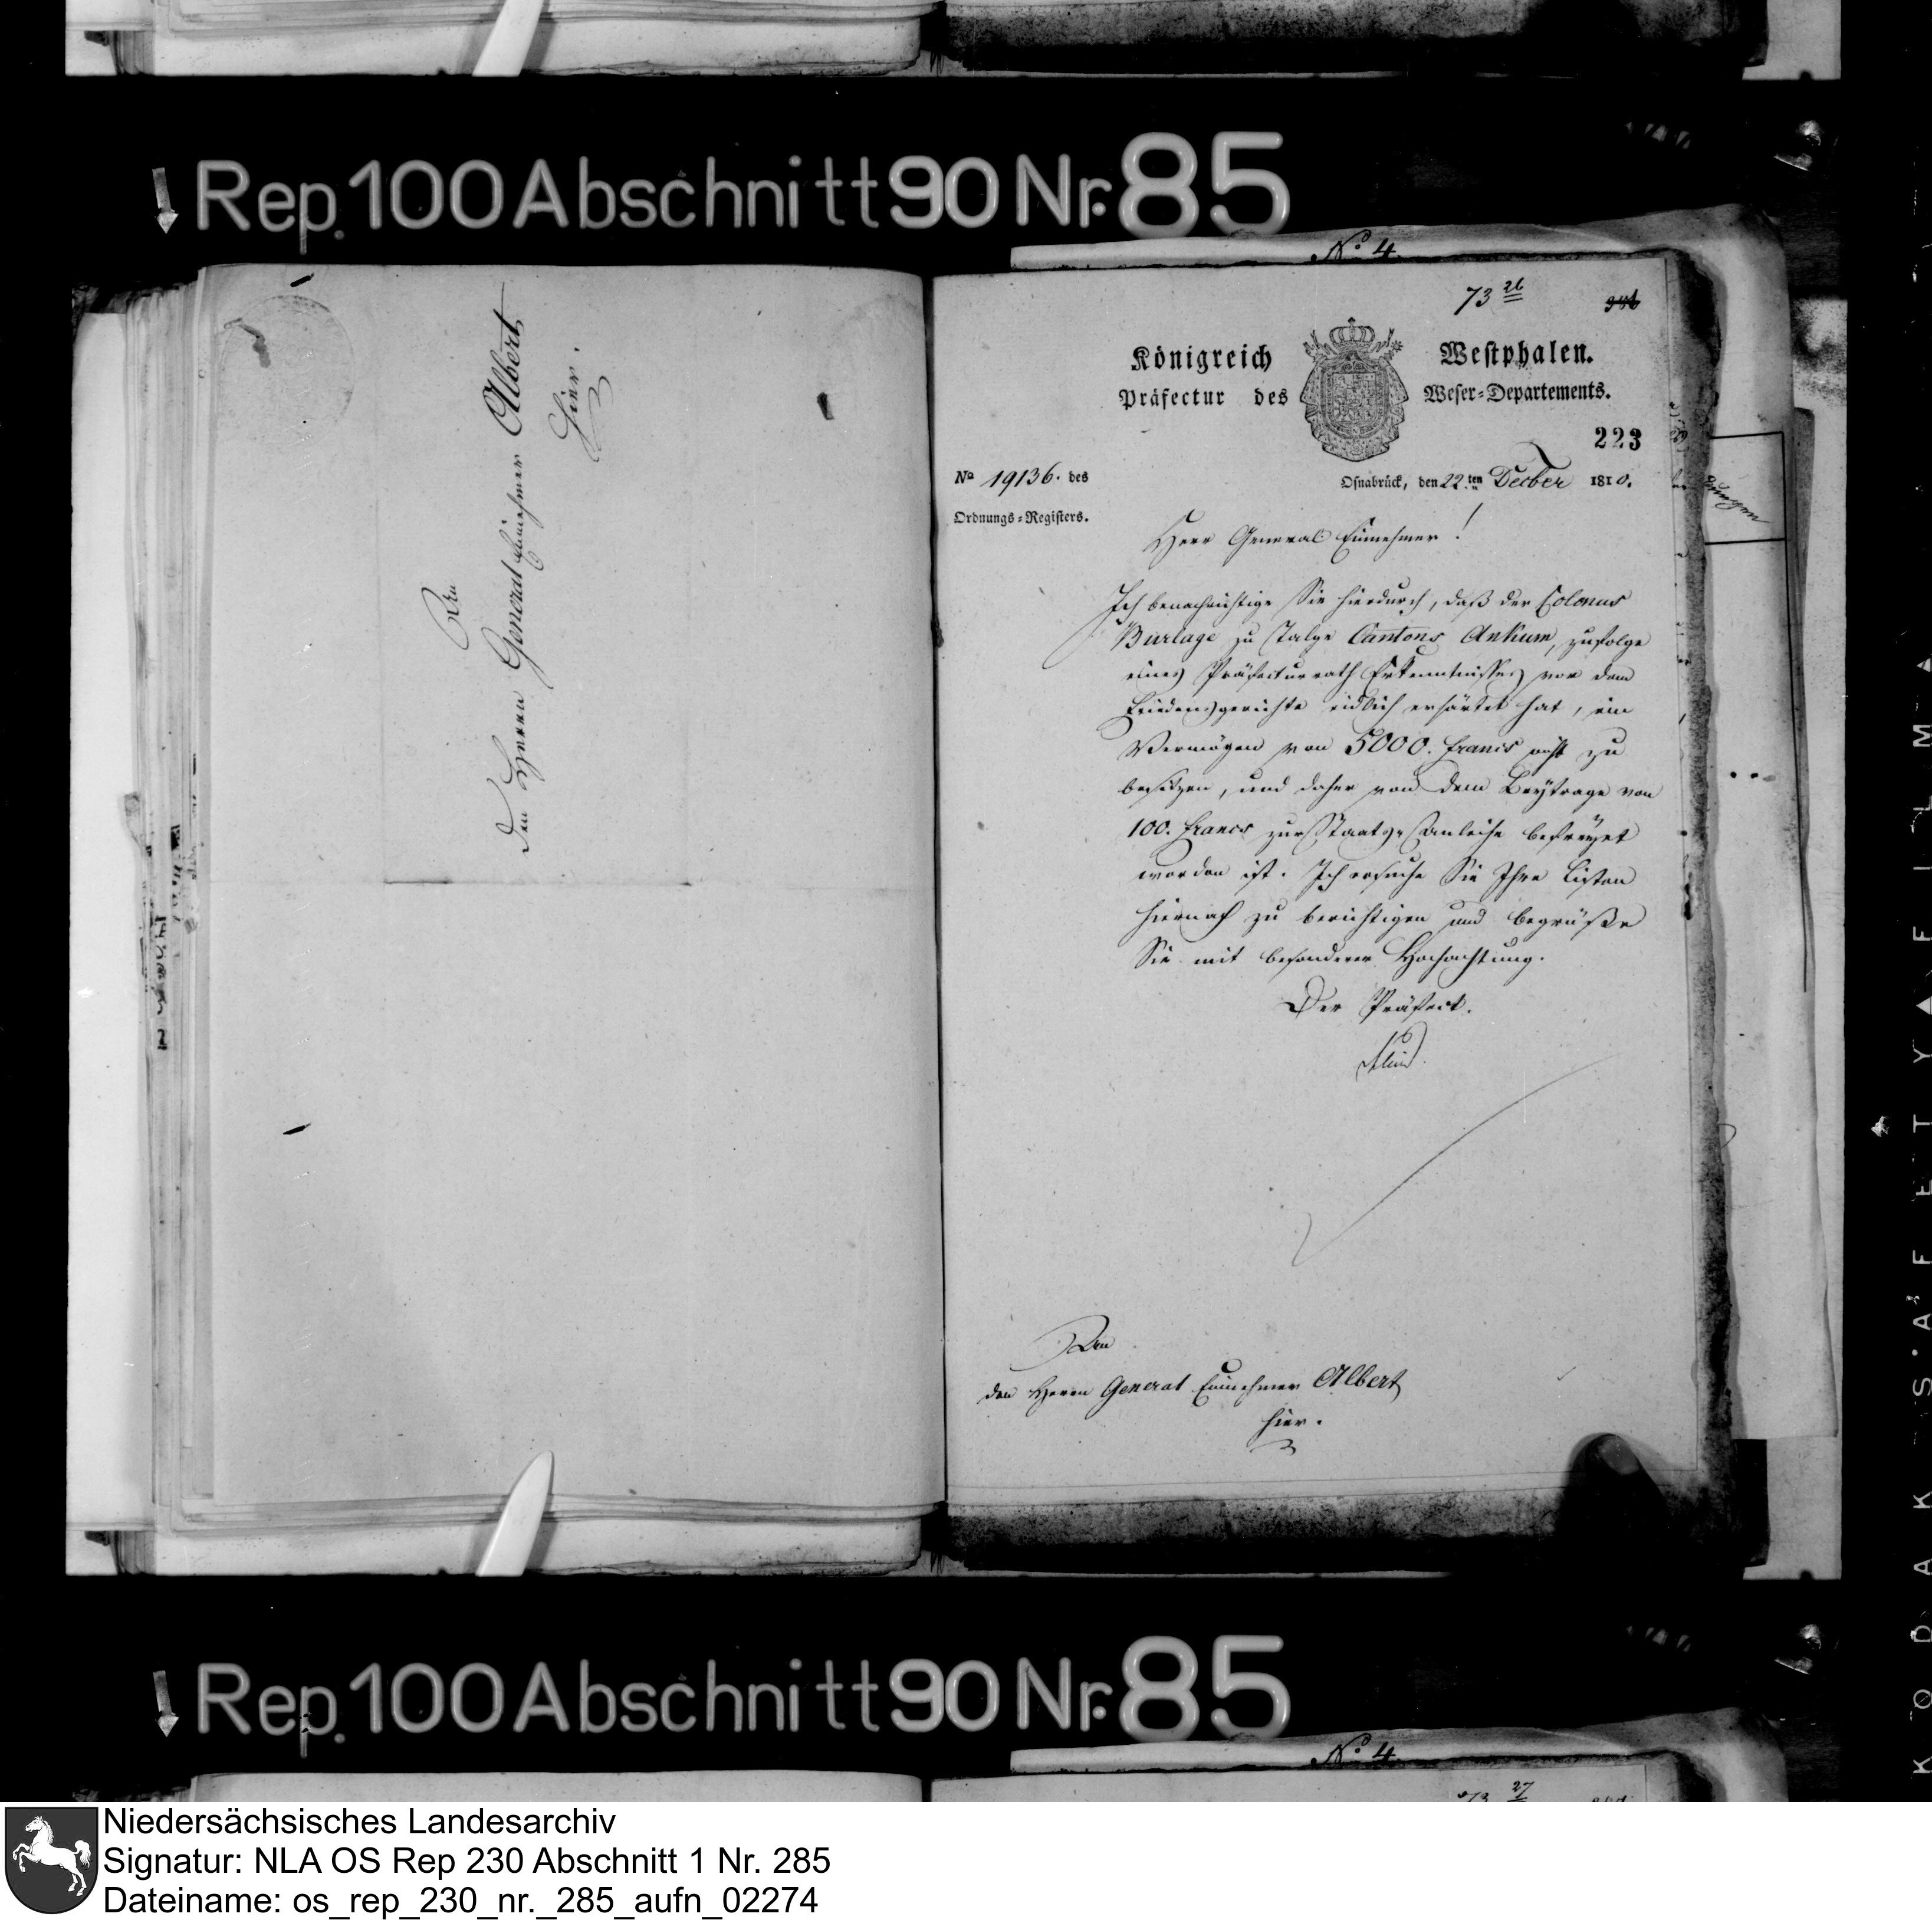 Rep. 100 Abschnitt 90 Nr. 85
No. 4.
An
den Herrn General Einnehmer Albert
hier.
73 26
Königreich Westphalen.
Präfectur des Weser=Departements.
223
No 19136. des
Ordnungs=Registers.
Osnabrück, den 22.ten Decber 1810.
Herr General Einnehmer!
Ich benachrichtige Sie hierdurch, daß der Colonus
Burlage zu Talge Cantons Ankum, zufolge
eines Präfecturrath Erkenntnisses vor dem
Friedensgerichte eidlich erhärtet hat, ein
Vermögen von 5000. Francs nicht zu
besitzen, und daher von dem Beytrage von
100. Francs zur Staats-Anleihe befreyet
worden ist. Ich ersuche Sie Ihre Listen
hiernach zu berichtigen und begrüße
Sie mit besonderer Hochachtung.
Der Präfect.
An
den Herrn General Einnehmer Albert
hier.
Rep. 100 Abschnitt 90 Nr. 85
No. 4.
73 27
KODAK SAFETY FILM
Niedersächsisches Landesarchiv
Signatur: NLA OS Rep 230 Abschnitt 1 Nr. 285
Dateiname: os_rep_230_nr._285_aufn_02274